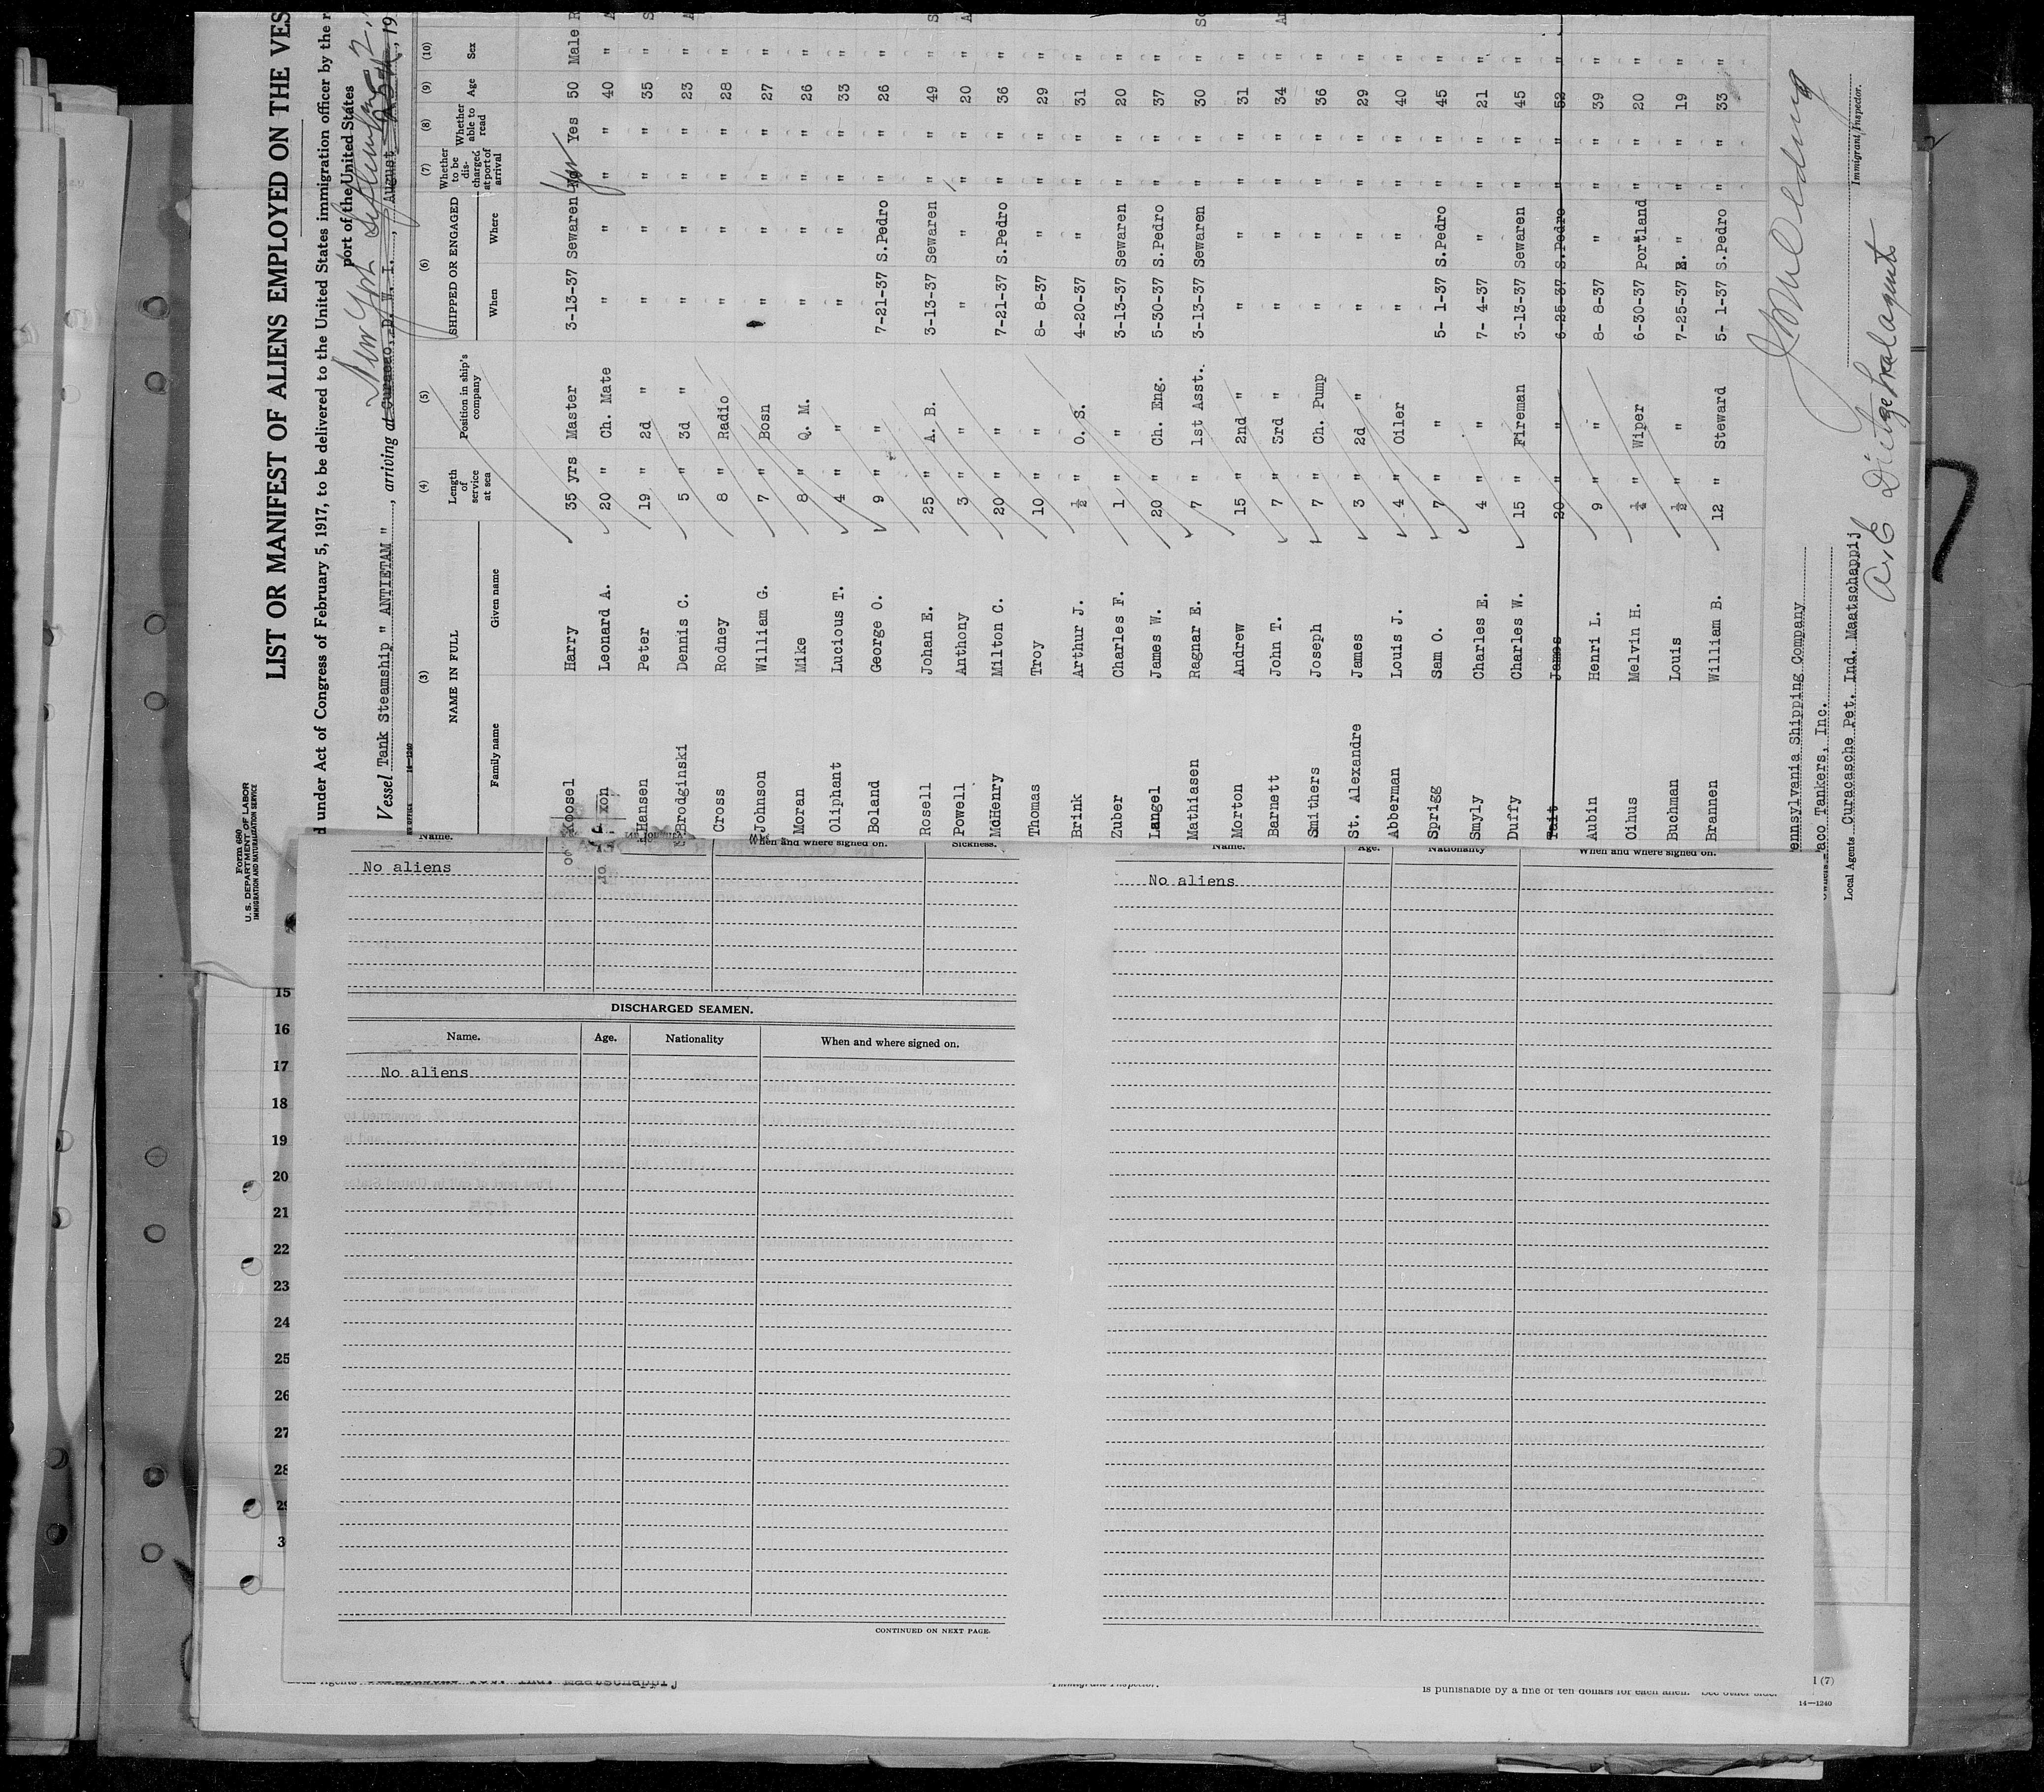 Form 680
U. S. DEPARTMENT OF LABOR
IMMIGRATION AND NATURALIZATION SERVICE
LIST OR MANIFEST OF ALIENS EMPLOYED ON THE VES
d under Act of Congress of February 5, 1917, to be delivered to the United States immigration officer by the r
port of the United States
New York September 2,
Vessel Tank Steamship " ANTIETAM ", arriving at Curacao, D. W. I., August, 19
14—1240
(3) (4) (5) (6) (7) (8) (9) (10)
NAME IN FULL Length of service at sea Position in ship's company SHIPPED OR ENGAGED Whether to be discharged at port of arrival Whether able to read Age Sex
Family name Given name When Where
Koosel Harry 35 yrs Master 3-13-37 Sewaren Yes 50 Male R
Leonard A. 20 " Ch. Mate " " " " 40 " A
Hansen Peter 19 " 2d " " " " " 35 " S
Brodginski Dennis C. 5 " 3d " " " " " 23 " A
Cross Rodney 8 " Radio " " " " 28 "
Johnson William G. 7 " Bosn " " " " 27 "
Moran Mike 8 " Q. M. " " " " 26 "
Oliphant Lucious T. 4 " " " " " " 33 "
Boland George O. 9 " " 7-21-37 S.Pedro " " 26 "
Rosell Johan E. 25 " A. B. 3-13-37 Sewaren " " 49 " S
Powell Anthony 3 " " " " " " 20 " A
McHenry Milton C. 20 " " 7-21-37 S.Pedro " " 36 "
Thomas Troy 10 " " 8- 8-37 " " " 29 "
Brink Arthur J. ½ " O. S. 4-20-37 " " " 31 "
Zuber Charles F. 1 " " 3-13-37 Sewaren " " 20 "
Langel James W. 20 " Ch. Eng. 5-30-37 S.Pedro " " 37 "
Mathiasen Ragnar E. 7 " 1st Asst. 3-13-37 Sewaren " " 30 "
Morton Andrew 15 " 2nd " " " " " 31 "
Barnett John T. 7 " 3rd " " " " " 34 "
Smithers Joseph 7 " Ch. Pump " " " " 36 "
St. Alexandre James 3 " 2d " " " " " 29 "
Abberman Louis J. 4 " Oiler " " " " 40 "
Sprigg Sam O. 7 " " 5- 1-37 S.Pedro " " 45 "
Smyly Charles E. 4 " " 7- 4-37 " " " 21 "
Duffy Charles W. 15 " Fireman 3-13-37 Sewaren " " 45 "
Tait James 20 " " 6-25-37 S.Pedro " " 52 "
Aubin Henri L. 9 " " 8- 8-37 " " " 39 "
Oihus Melvin H. ¼ " Wiper 6-30-37 Portland " " 20 "
Buchman Louis ½ " " 7-25-37 " " " 19 "
Brannen William B. 12 " Steward 5- 1-37 S.Pedro " " 33 "
ennsylvania Shipping Company
aco Tankers, Inc.
Local Agents Curacaosche Pet. Ind. Maatschappij
Immigrant Inspector.
Name. When and where signed on. Sickness.
No aliens
DISCHARGED SEAMEN.
Name. Age. Nationality When and where signed on.
No aliens
CONTINUED ON NEXT PAGE.
Name. Age. Nationality When and where signed on.
No aliens
15
16
17
18
19
20
21
22
23
24
25
26
27
28
29
3
Immigrant Inspector.
is punishable by a fine of ten dollars for each alien. See other side.
(7)
14—1240